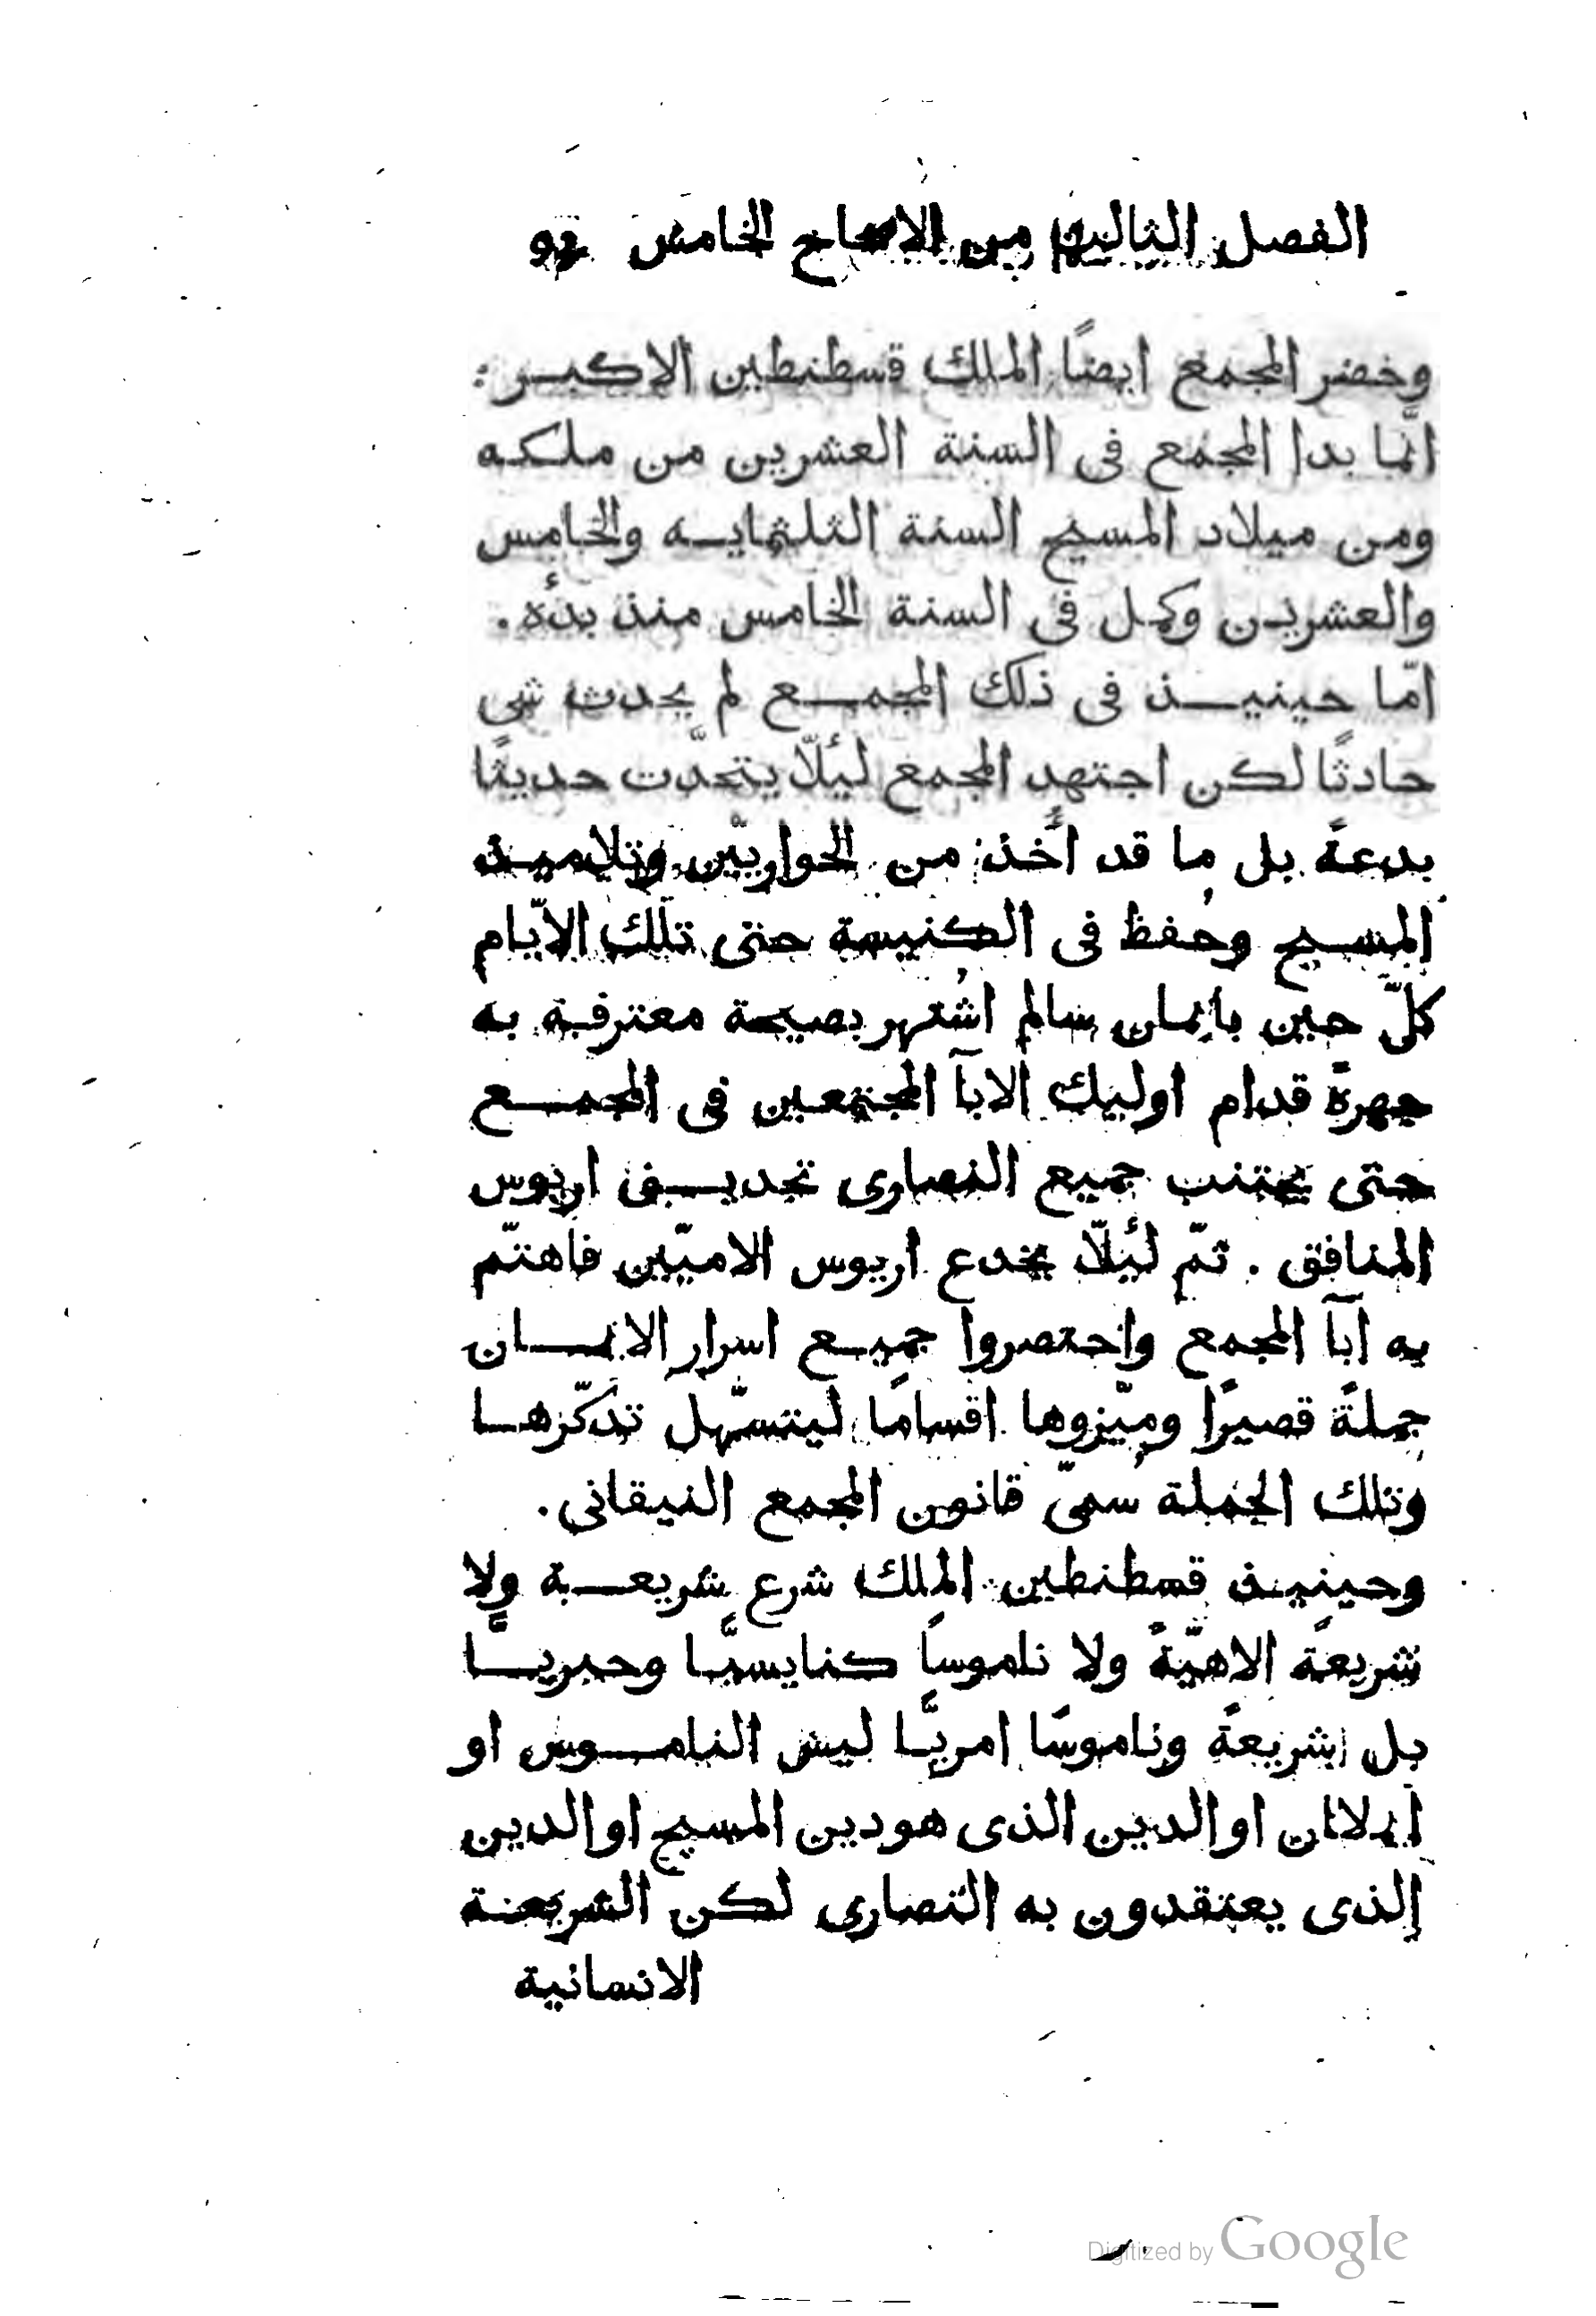 الفصل الثالث من الاصحاح الخامس
وحضر المجمع ايضًا الملك قسطنطين الاكبر :
انّما بدا المجمع فى السنة العشرين من ملكه
ومن ميلاد المسيح السنة الثلثمايه والخامس
والعشرين وكمل فى السنة الخامس منذ بدأه .
امّا حينيذ فى ذلك المجمع لم يحدث شى
حادثًا لكن اجتهد المجمع ليُلّا يتحدّث حديثًا
بدعةً بل ما قد أُخذ من الحواريّين وتلاميذ
المسيح وحُفظ فى الكنيسة حتى تلك الايّام
كلّ حين بايمان سالم اشتُهر بصيحة معترفية به
جهرةً قدام اوليك الابآ المجتمعين فى المجمع
حتى يجتنب جميع النصارى تجديف اريوس
المنافق . ثمّ ليُلّا يخدع اريوس الاميّين فاهتمّ
به ابآ المجمع واختصروا جميع اسرار الايمان
جملةً قصيرًا وميّزوها اقسامًا ليتسهّل تذكّرها
وتلك الجملة سُمىّ قانون المجمع النيقانى .
وحينيذ قسطنطين الملك شرع شريعة ولا
شريعةً الاهيّةً ولا ناموسًا كنايسيًّا وحبريًّا
بل شريعةً وناموسًا امريًّا ليس الناموس او
ايملاان او الدين الذى هو دين المسيح او الدين
الذى يعتقدون به النصارى لكن الشريعة
الانسانية
Digitized by Google